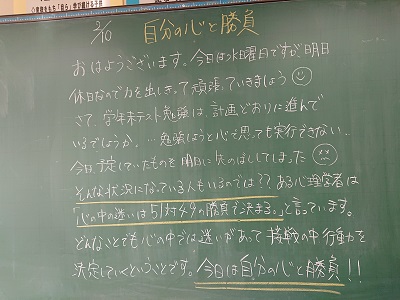 2/10 自分の心と勝負
おはようございます。今日は水曜日ですが、明日
休日なので力を出しきって頑張っていきましょう
さて、学年末テスト勉強は、計画どおりに進んで
いるでしょうか。…勉強しようと心で思っても実行できない…
今日、予定していたものを明日に先のばししてしまった
そんな状況になっている人もいるのでは?? ある心理学者は
「心の中の迷いは51対49の勝負で決まる。」と言っています。
どんなことでも心の中では迷いがあって接戦の中行動を
決定していくということです。今日は自分の心と勝負!!